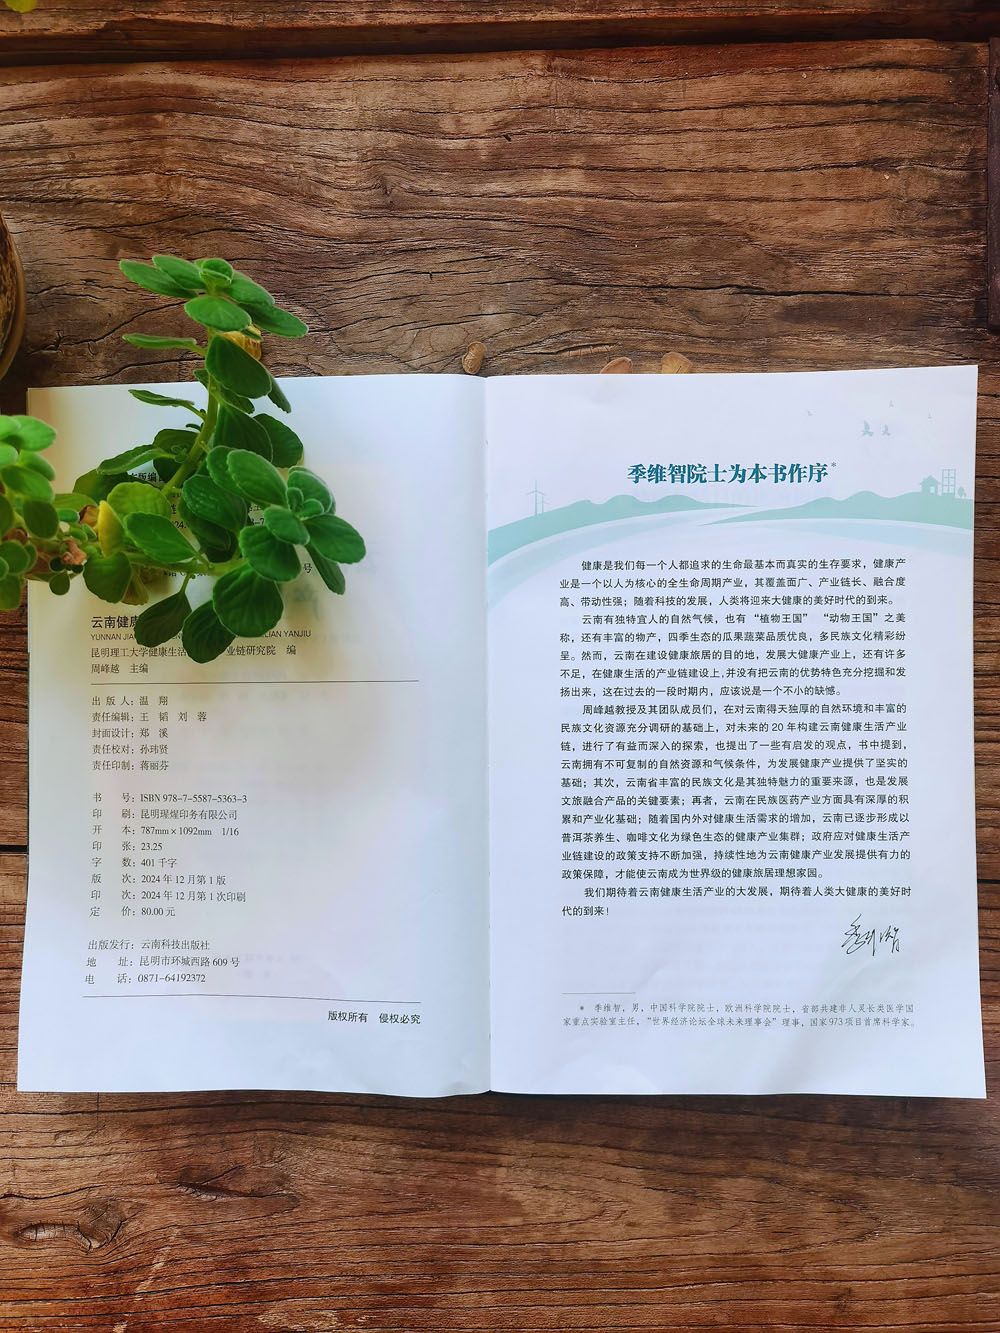 云南健康
YUNNAN
LIAN YANJIU
昆明理工大学健康生活
业链研究院　编
周峰越　主编
出 版 人：温　翔
责任编辑：王　韬　刘　蓉
封面设计：郑　溪
责任校对：孙玮贤
责任印制：蒋丽芬
书　　号：ISBN 978-7-5587-5363-3
印　　刷：昆明理煋印务有限公司
开　　本：787mm×1092mm　1/16
印　　张：23.25
字　　数：401千字
版　　次：2024年12月第1版
印　　次：2024年12月第1次印刷
定　　价：80.00元
出版发行：云南科技出版社
地　　址：昆明市环城西路609号
电　　话：0871-64192372
版权所有　侵权必究
季维智院士为本书作序*
健康是我们每一个人都追求的生命最基本而真实的生存要求，健康产
业是一个以人为核心的全生命周期产业，其覆盖面广、产业链长、融合度
高、带动性强；随着科技的发展，人类将迎来大健康的美好时代的到来。
云南有独特宜人的自然气候，也有“植物王国”“动物王国”之美
称，还有丰富的物产，四季生态的瓜果蔬菜品质优良，多民族文化精彩纷
呈。然而，云南在建设健康旅居的目的地，发展大健康产业上，还有许多
不足，在健康生活的产业链建设上，并没有把云南的优势特色充分挖掘和发
扬出来，这在过去的一段时期内，应该说是一个不小的缺憾。
周峰越教授及其团队成员们，在对云南得天独厚的自然环境和丰富的
民族文化资源充分调研的基础上，对未来的20年构建云南健康生活产业
链，进行了有益而深入的探索，也提出了一些有启发的观点，书中提到，
云南拥有不可复制的自然资源和气候条件，为发展健康产业提供了坚实的
基础；其次，云南省丰富的民族文化是其独特魅力的重要来源，也是发展
文旅融合产品的关键要素；再者，云南在民族医药产业方面具有深厚的积
累和产业化基础；随着国内外对健康生活需求的增加，云南已逐步形成以
普洱茶养生、咖啡文化为绿色生态的健康产业集群；政府应对健康生活产
业链建设的政策支持不断加强，持续性地为云南健康产业发展提供有力的
政策保障，才能使云南成为世界级的健康旅居理想家园。
我们期待着云南健康生活产业的大发展，期待着人类大健康的美好时
代的到来！
季维智
* 季维智，男，中国科学院院士，欧洲科学院院士，省部共建非人灵长类医学国
家重点实验室主任，“世界经济论坛全球未来理事会”理事，国家973项目首席科学家。